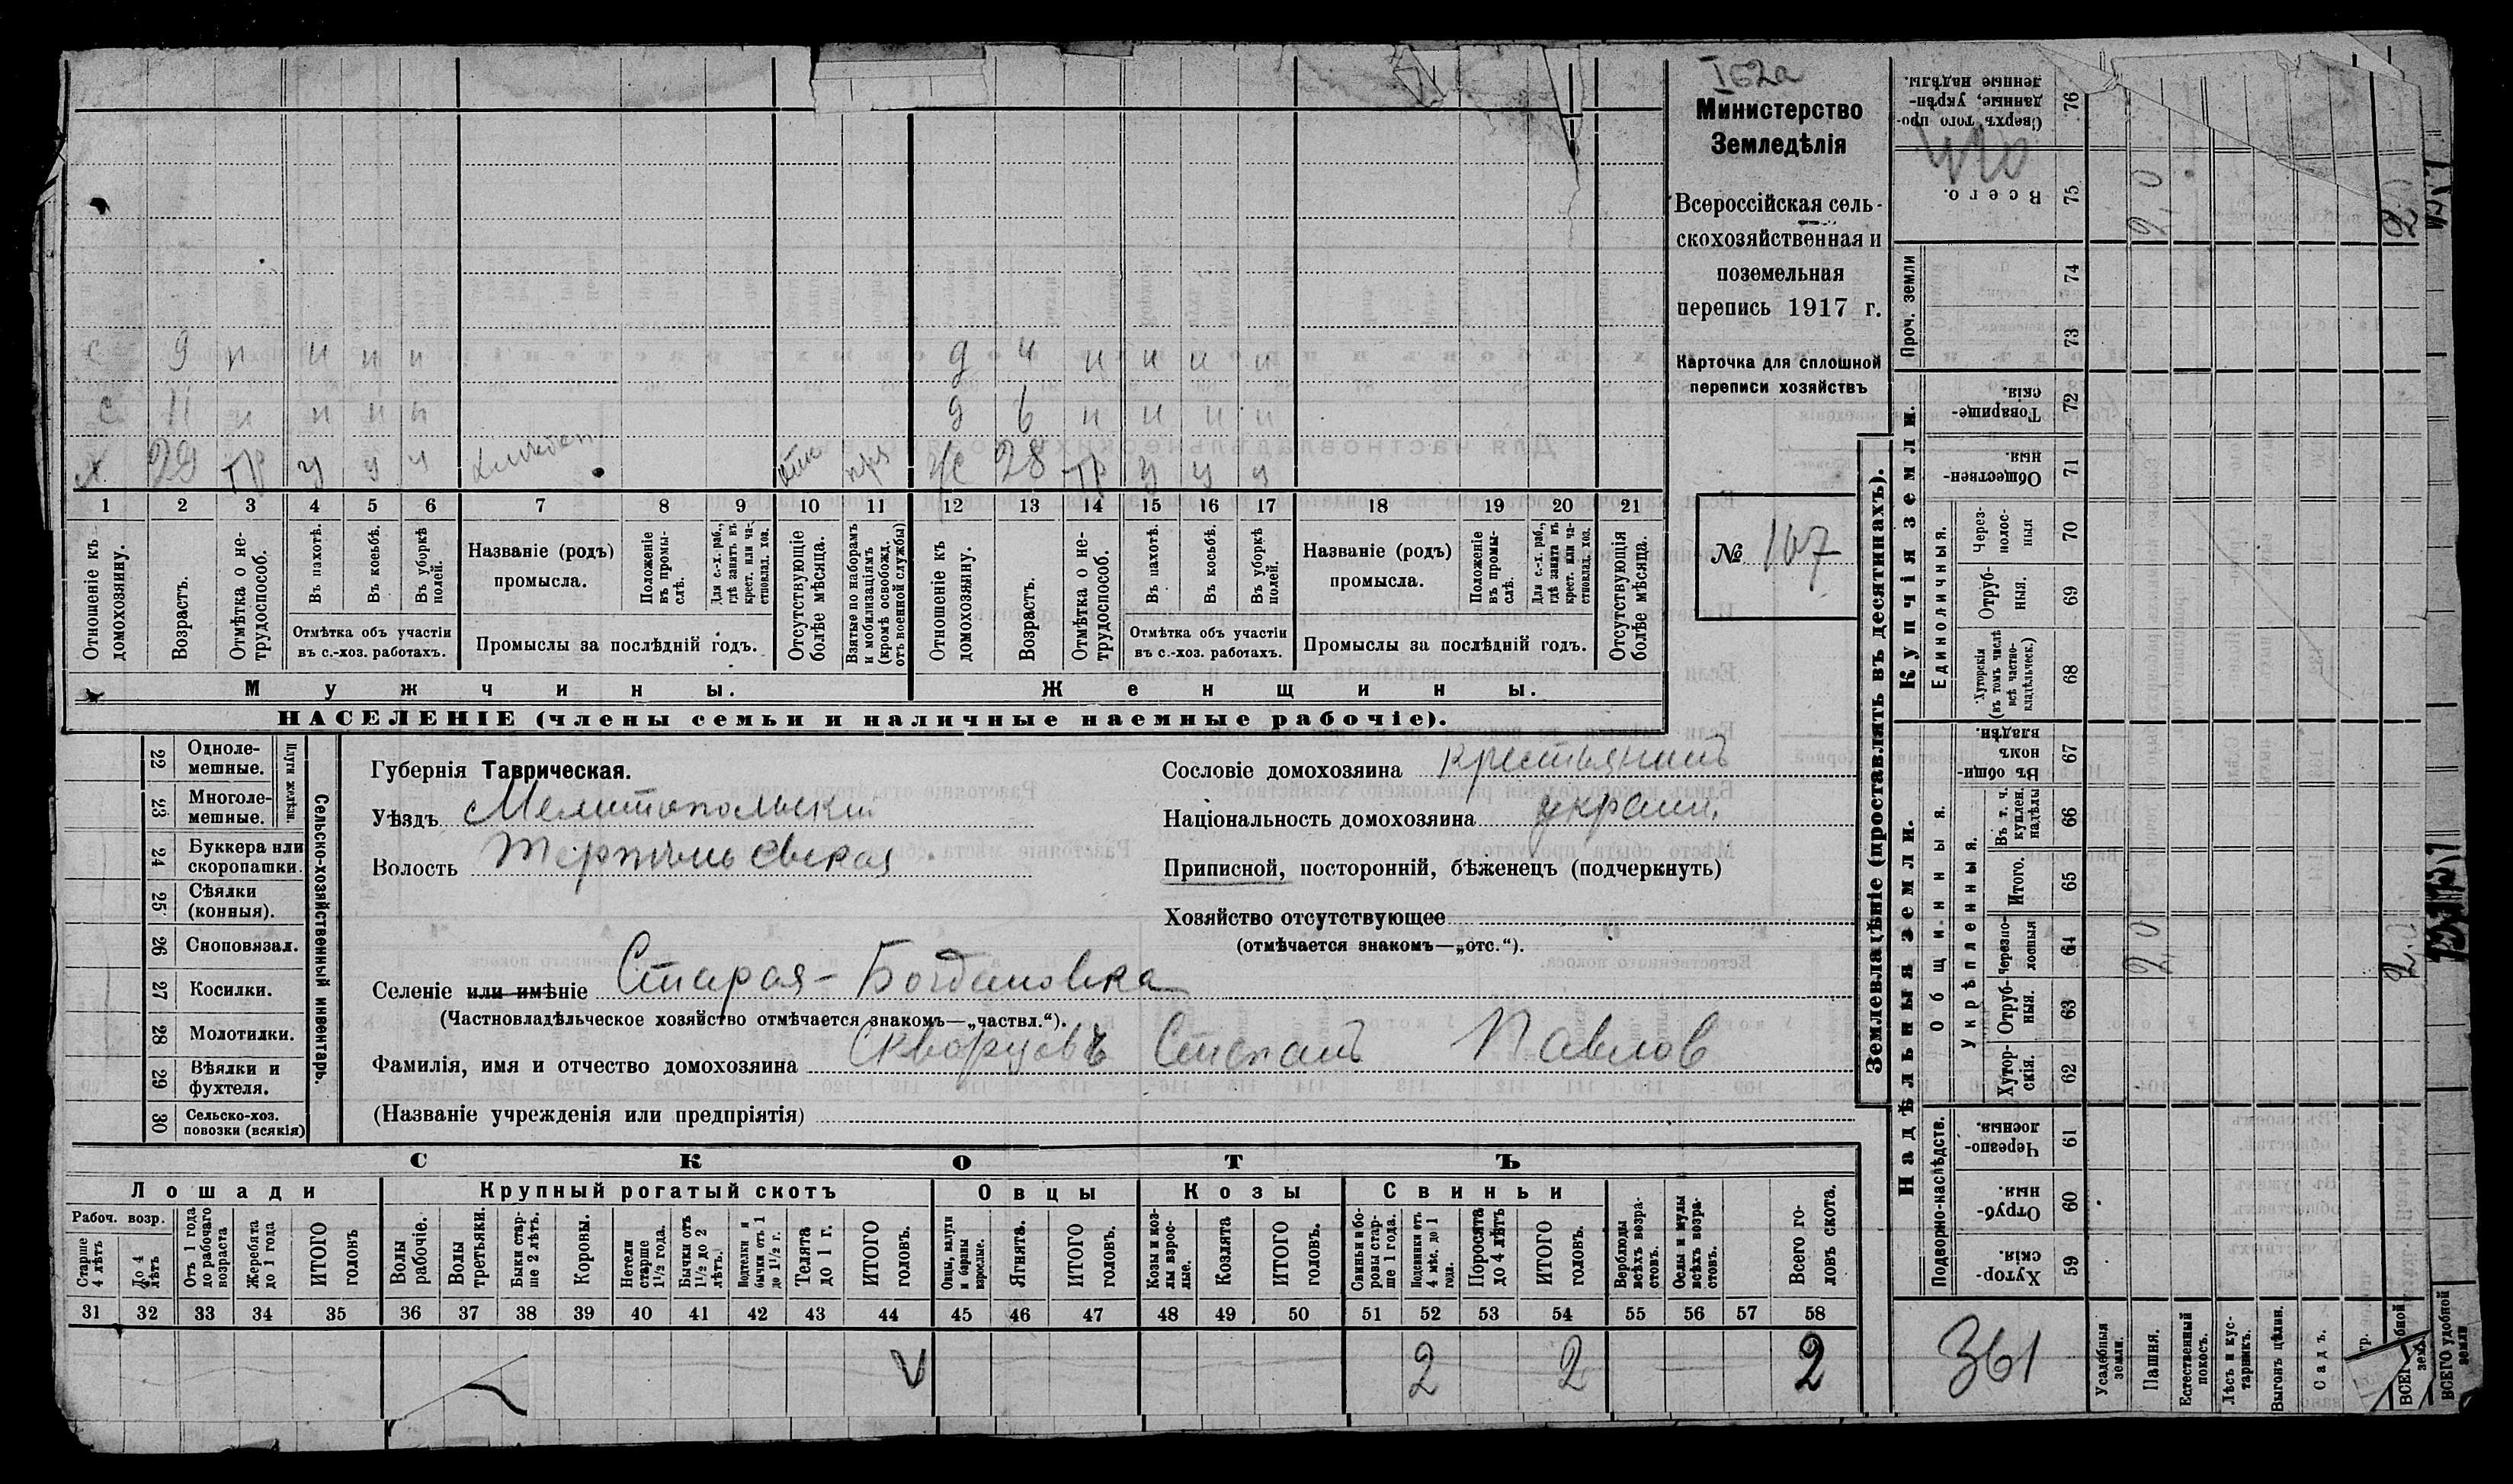 I 52а
Министерство
Земледѣлія
Всероссійская сель-
скохозяйственная и
поземельная
перепись 1917 г.
Карточка для сплошной
переписи хозяйствъ
№ 167
с 9 п и и и д 4 и и и и
с 11 и и и и д 6 и и и и
х 29 тр у у у ж 28 тр у у у
1 2 3 4 5 6 7 8 9 10 11 12 13 14 15 16 17 18 19 20 21
Отношеніе къ домохозяину.
Возрастъ.
Отмѣтка о не-трудоспособ.
Въ пахотѣ.
Въ косьбѣ.
Въ уборкѣ полей.
Отмѣтка объ участіи
въ с.-хоз. работахъ.
Названіе (родъ)
промысла.
Положеніе въ промы-слѣ.
Для с.-х. раб., гдѣ занятъ въ крест. или ча-стновлад. хоз.
Промыслы за послѣдній годъ.
Отсутствующіе болѣе мѣсяца.
Взятые по наборамъ и мобилизаціямъ (кромѣ освобожд. отъ военной службы)
Отношеніе къ домохозяину.
Возрастъ.
Отмѣтка о не-трудоспособ.
Въ пахотѣ.
Въ косьбѣ.
Въ уборкѣ полей.
Отмѣтка объ участіи
въ с.-хоз. работахъ.
Названіе (родъ)
промысла.
Положеніе въ промы-слѣ.
Для с.-х. раб., гдѣ занята въ крест. или ча-стновлад. хоз.
Промыслы за послѣдній годъ.
Отсутствующія болѣе мѣсяца.
Мужчины. Женщины.
НАСЕЛЕНІЕ (члены семьи и наличные наемные рабочіе).
Сельско-хозяйственный инвентарь.
Плуги желѣзн.
22 Одноле-мешные.
23 Многоле-мешные.
24 Буккера или скоропашки.
25 Сѣялки (конныя).
26 Сноповязал.
27 Косилки.
28 Молотилки.
29 Вѣялки и фухтеля.
30 Сельско-хоз. повозки (всякія)
Губернія Таврическая.
Уѣздъ Мелитопольскій
Волость Терпеньевская
Селеніе или имѣніе Старая-Богдановка
(Частновладѣльческое хозяйство отмѣчается знакомъ—„частвл.“).
Фамилія, имя и отчество домохозяина Скворцовъ Степанъ Павлов
(Названіе учрежденія или предпріятія)
Сословіе домохозяина крестьянинъ
Національность домохозяина украин.
Приписной, посторонній, бѣженецъ (подчеркнуть)
Хозяйство отсутствующее
(отмѣчается знакомъ—„отс.“).
СКОТЪ
Лошади Крупный рогатый скотъ Овцы Козы Свиньи
Рабоч. возр.
Старше 4 лѣтъ
До 4 лѣтъ
Отъ 1 года до рабочаго возраста
Жеребята до 1 года
ИТОГО головъ
Волы рабочіе.
Волы третьяки.
Быки стар-ше 2 лѣтъ.
Коровы.
Нетели старше 1½ года.
Бычки отъ 1½ до 2 лѣтъ.
Водтелки и бычки отъ 1 до 1½ г.
Телята до 1 г.
ИТОГО головъ.
Овцы, валухи и бараны взрослые.
Ягнята.
ИТОГО головъ.
Козы и коз-лы взрос-лые.
Козлята
ИТОГО головъ.
Свиньи и бо-ровы стар-ше 1 года.
Подсвинки отъ 4 мѣс. до 1 года.
Поросята до 4 лѣтъ
ИТОГО головъ.
Верблюды всѣхъ возра-стовъ.
Ослы и мулы всѣхъ возра-стовъ.
Всего го-ловъ скота.
31 32 33 34 35 36 37 38 39 40 41 42 43 44 45 46 47 48 49 50 51 52 53 54 55 56 57 58
2 2 2
Землевладѣніе (проставлять въ десятинахъ).
Купчія земли.
Надѣльныя земли.
Сверхъ того про-данные, укрѣп-ленные надѣлы. 76
Всего. 75
Проч. земли 74 73
Товарище-скія. 72
Обществен-ныя. 71
Единоличныя.
Через-полос-ныя 70
Отруб-ныя. 69
Хуторскія (въ томъ числѣ всѣ частно-владѣльческ.) 68
Въ общи-номъ владѣн. 67
Общинныя.
Укрѣпленныя.
Въ т. ч. куплен. надѣлы 66
Итого. 65
Черезпо-лосныя 64
Отруб-ныя. 63
Хутор-скія. 62
Подворно-наслѣдств.
Черезпо-лосныя 61
Отруб-ныя. 60
Хутор-скія. 59
361
Усадебныя земли.
Пашня. 2,0 2,0
Естественный покосъ.
Лѣсъ и кус-тарникъ.
Выгонъ цѣлин.
Садъ.
ВСЕГО удобной земли